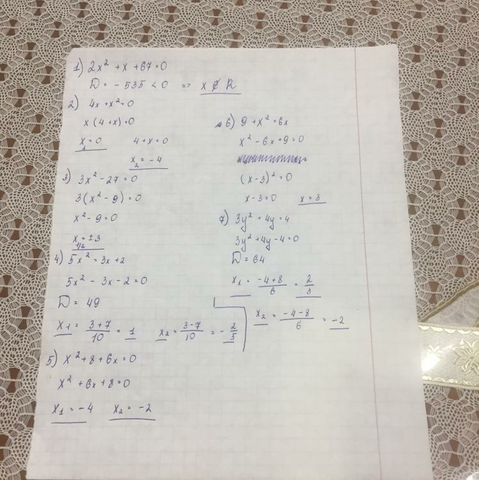 1) 2x² + x + 67 = 0
D = - 535 < 0 => x ∉ R
2) 4x + x² = 0
x (4 + x) = 0
x₁ = 0 4 + x = 0
x₂ = -4
3) 3x² - 27 = 0
3(x² - 9) = 0
x² - 9 = 0
x₁,₂ = ±3
4) 5x² = 3x + 2
5x² - 3x - 2 = 0
D = 49
x₁ = (3+7)/10 = 1 x₂ = (3-7)/10 = -2/5
5) x² + 8 + 6x = 0
x² + 6x + 8 = 0
x₁ = -4 x₂ = -2
6) 9 + x² = 6x
x² - 6x + 9 = 0
(x - 3)² = 0
x - 3 = 0 x = 3
7) 3y² + 4y = 4
3y² + 4y - 4 = 0
D = 64
x₁ = (-4+8)/6 = 2/3
x₂ = (-4-8)/6 = -2